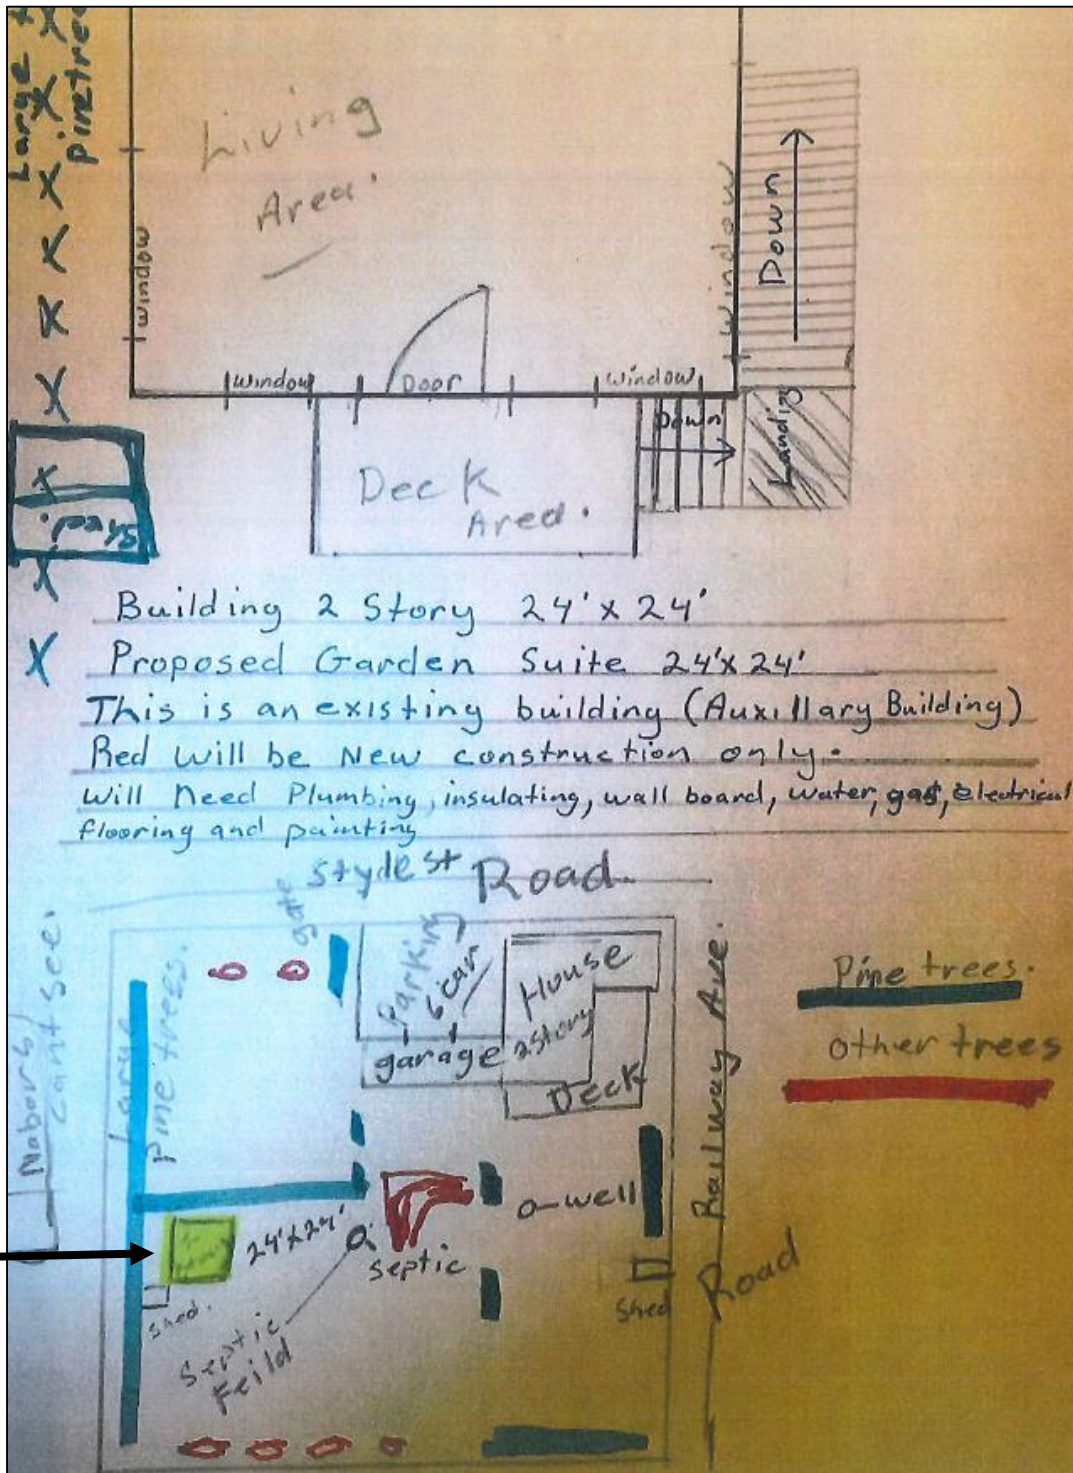 Large
pinetree
Living
Area.
window
window
Down
window
Door
window
Down
Landing
Deck
Area.
Shed.
Building 2 Story 24'x 24'
Proposed Garden Suite 24'x 24'
This is an existing building (Auxillary Building)
Red will be New construction only.
Will Need Plumbing, insulating, wall board, water, gas, electrical
flooring and painting
Style st Road
gate
Parking
6 car
House
2 story
garage
Deck
Nabors
cant see.
Large
Pine trees.
Railway Ave.
Road
Pine trees.
other trees
o-well
24'x24'
Septic
Shed.
Septic
Feild
Shed